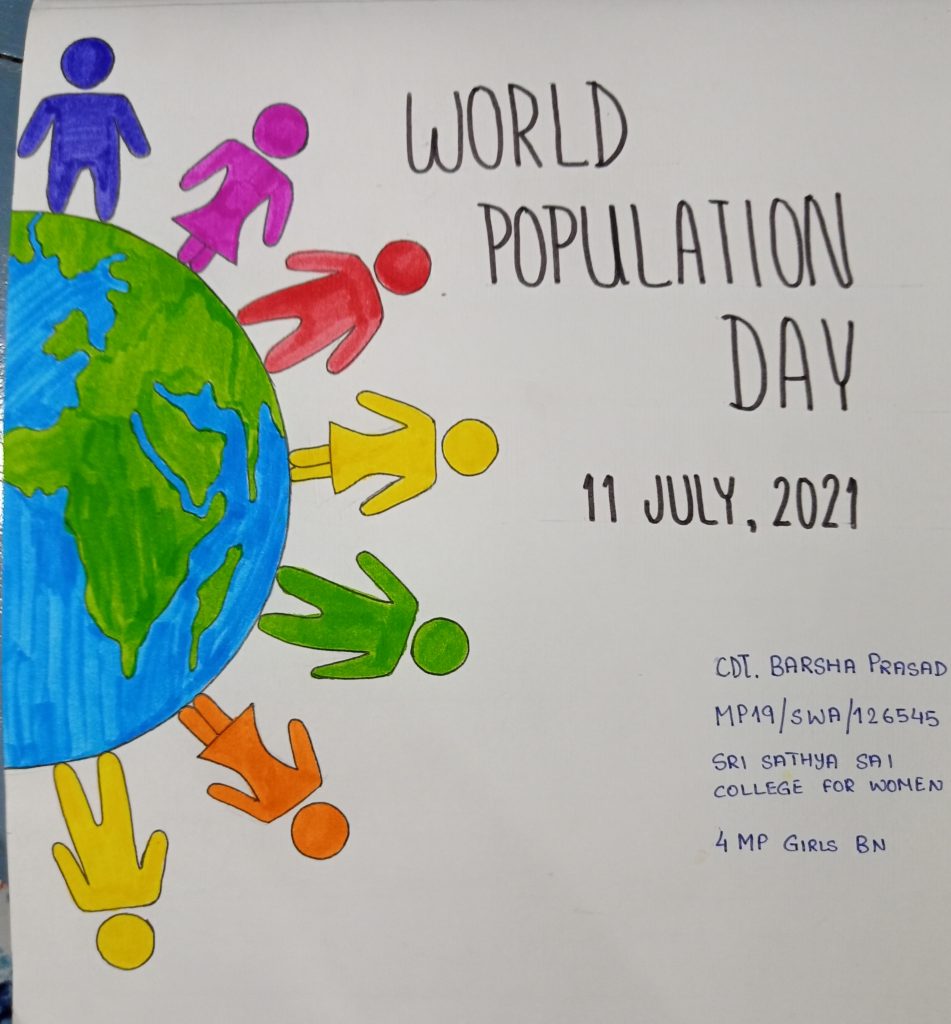 WORLD
POPULATION
DAY
11 JULY, 2021
CDT. BARSHA PRASAD
MP19/SWA/126545
SRI SATHYA SAI
COLLEGE FOR WOMEN
4 MP GIRLS BN